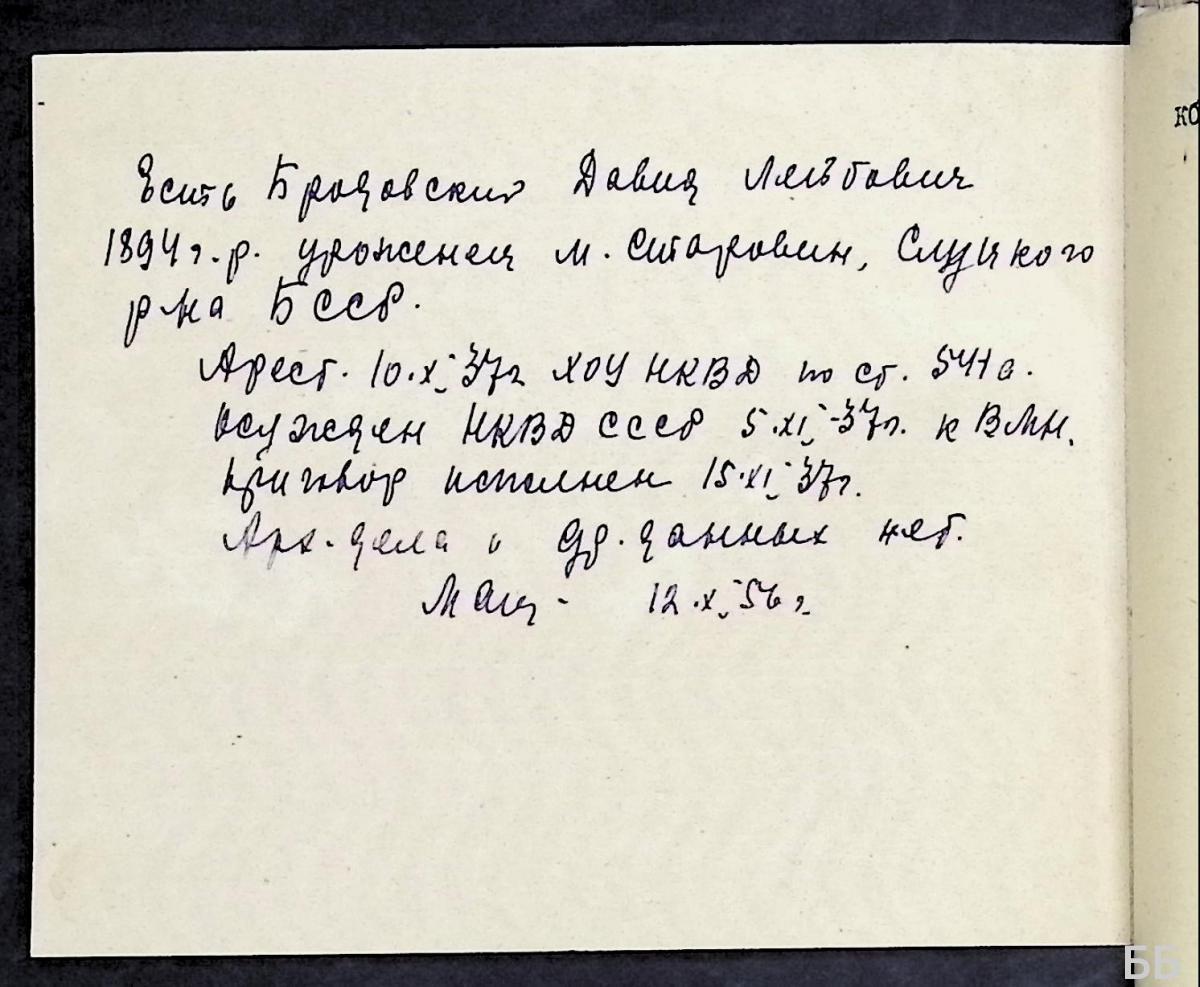 Есть Бродовский Давид Лейбович
1894 г.р. уроженец м. Старобин, Слуцкого
р-на БССР.
Арест. 10.X-37г ХОУ НКВД по ст. 54-1 а.
Осужден НКВД СССР 5.XI-37г. к ВМН.
Приговор исполнен 15.XI-37г.
Арх. дела и др. данных нет.
12.X-56 г.
ко
ББ